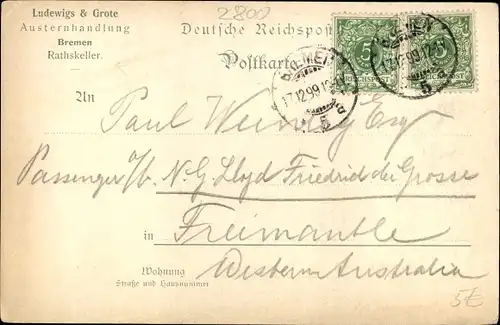 Ludewigs & Grote
Austernhandlung
Bremen
Rathskeller.
2800
Deutsche Reichspost
Postkarte
5
REICHSPOST
5
REICHSPOST
BREMEN
17.12.99
5
BREMEN
17.12.99
5
An
Paul Esq
Passenger a/b. N. G. Lloyd Friedrich der Grosse
in Freimantle
Western Australia
Wohnung
Straße und Hausnummer
5€